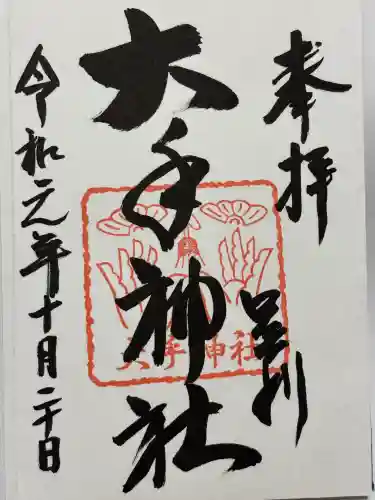 奉拝
大手神社
大手神社
令和元年十月二十日